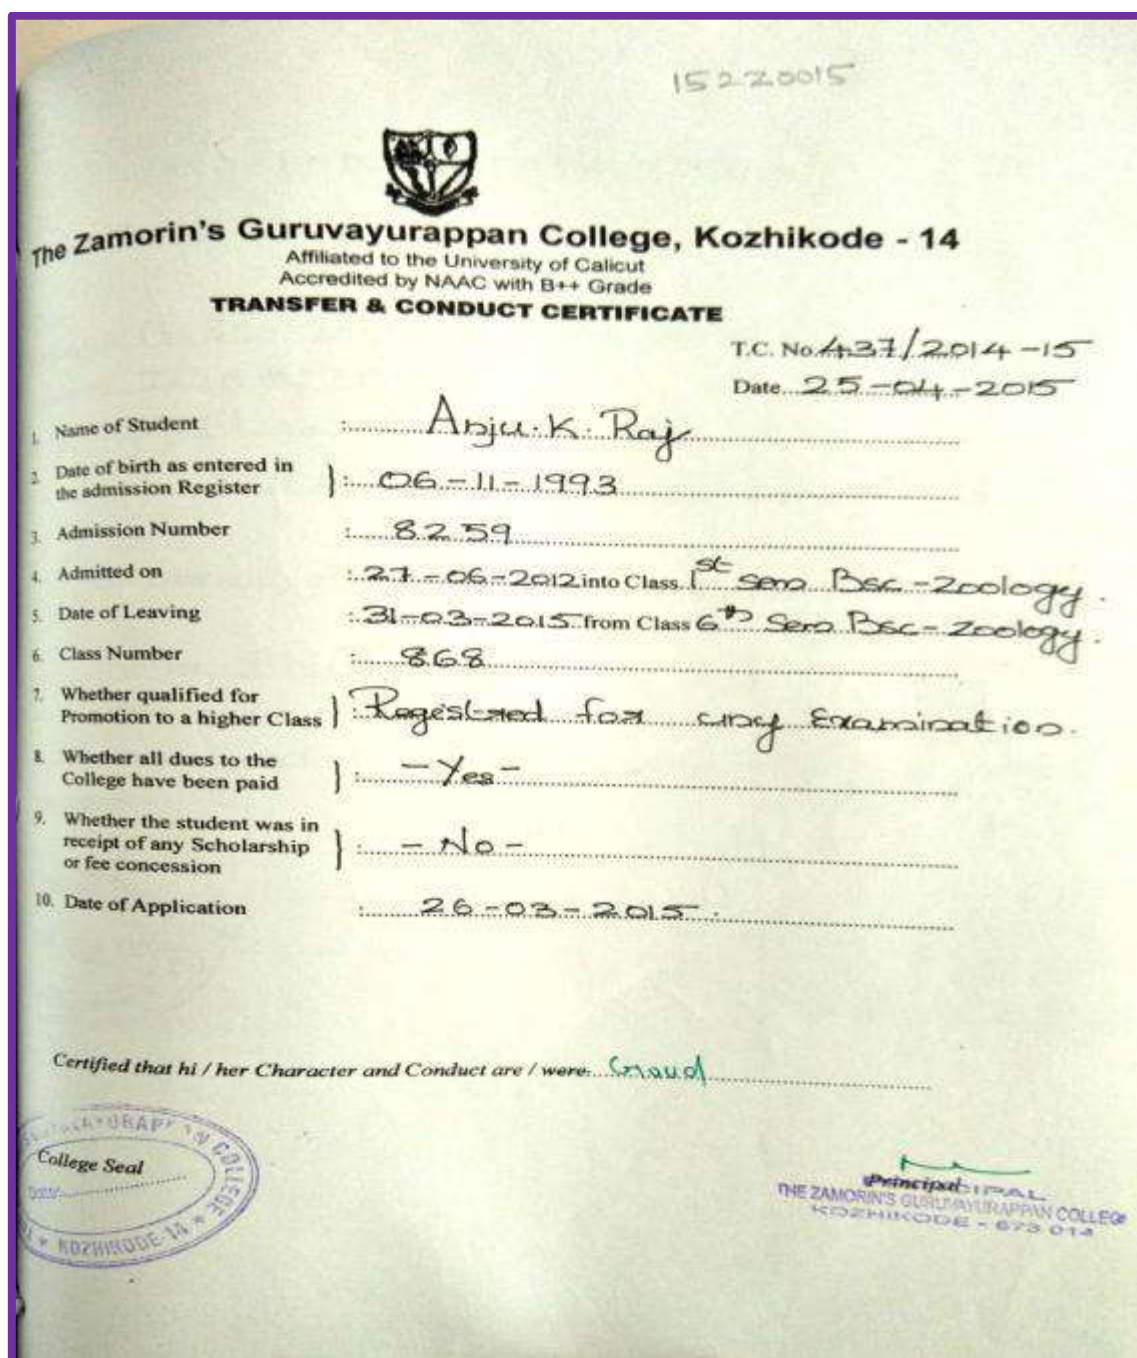 15220015
The Zamorin's Guruvayurappan College, Kozhikode - 14
Affiliated to the University of Calicut
Accredited by NAAC with B++ Grade
TRANSFER & CONDUCT CERTIFICATE
T.C. No. 437/2014-15
Date 25-04-2015
1. Name of Student : Anju. K. Raj
2. Date of birth as entered in
the admission Register } : 06-11-1993
3. Admission Number : 8259
4. Admitted on : 27-06-2012 into Class 1st Sem Bsc - Zoology.
5. Date of Leaving : 31-03-2015 from Class 6th Sem Bsc - Zoology.
6. Class Number : 868
7. Whether qualified for
Promotion to a higher Class } : Registred for uny Examination.
8. Whether all dues to the
College have been paid } : - Yes -
9. Whether the student was in
receipt of any Scholarship
or fee concession } : - No -
10. Date of Application : 26-03-2015.
Certified that hi / her Character and Conduct are / were Good
College Seal
COLLEGE
KOZHIKODE-14
Principal
PRINCIPAL
THE ZAMORIN'S GURUVAYURAPPAN COLLEGE
KOZHIKODE - 673 014